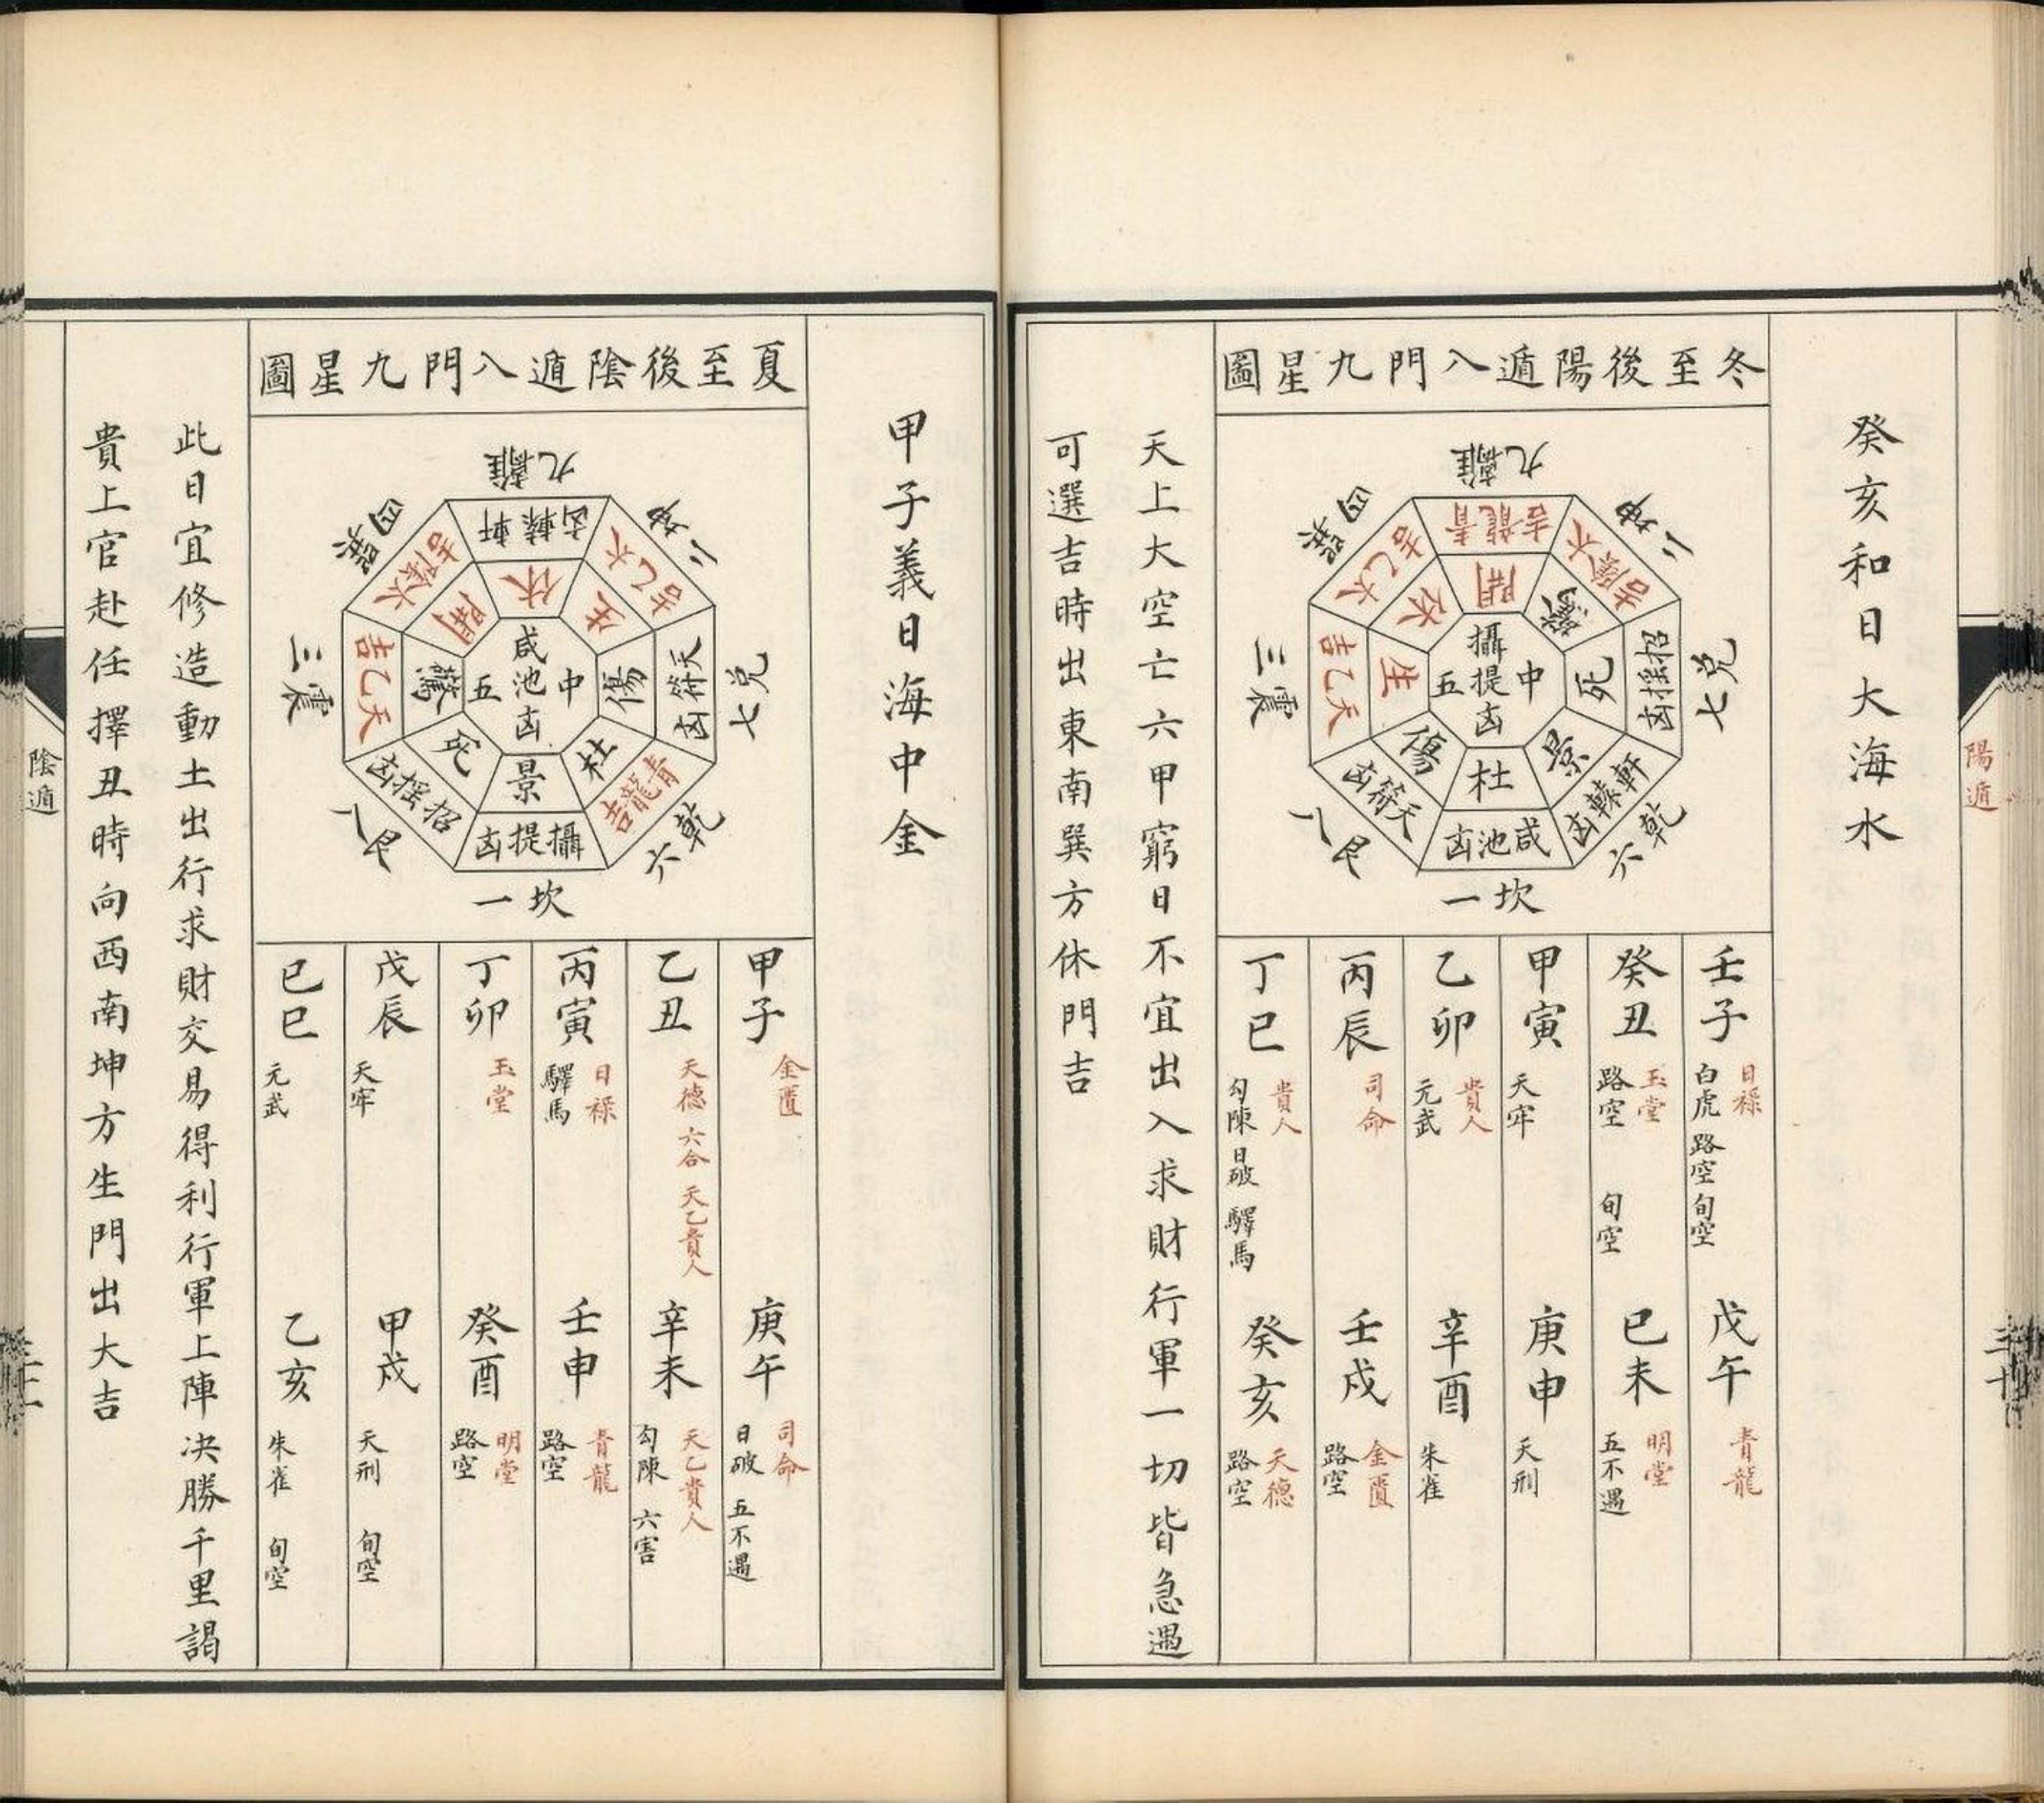 陽遁
三十
癸亥和日大海水
冬至後陽遁八門九星圖
九離
青龍吉
開
二坤
太陰吉
驚
七兌
招搖凶
死
六乾
軒轅凶
景
一坎
咸池凶
杜
八艮
天符凶
傷
三震
天乙吉
生
四巽
太乙吉
休
中
攝提凶
五
壬子 日祿 白虎 路空 旬空
戊午 青龍
癸丑 玉堂 路空 旬空
己未 明堂 五不遇
甲寅 天牢
庚申 天刑
乙卯 貴人 元武
辛酉 朱雀
丙辰 司命
壬戌 金匱 路空
丁巳 貴人 勾陳 日破 驛馬
癸亥 天德 路空
天上大空亡六甲窮日不宜出入求財行軍一切皆急遇
可選吉時出東南巽方休門吉
甲子義日海中金
夏至後陰遁八門九星圖
九離
軒轅凶
休
二坤
太乙吉
生
七兌
天符凶
傷
六乾
青龍吉
杜
一坎
攝提凶
景
八艮
招搖凶
死
三震
天乙吉
驚
四巽
太陰吉
開
中
咸池凶
五
甲子 金匱
庚午 司命 日破 五不遇
乙丑 天德 六合 天乙貴人
辛未 天乙貴人 勾陳 六害
丙寅 日祿 驛馬
壬申 青龍 路空
丁卯 玉堂
癸酉 明堂 路空
戊辰 天牢
甲戌 天刑 旬空
己巳 元武
乙亥 朱雀 旬空
此日宜修造動土出行求財交易得利行軍上陣決勝千里謁
貴上官赴任擇丑時向西南坤方生門出大吉
陰遁